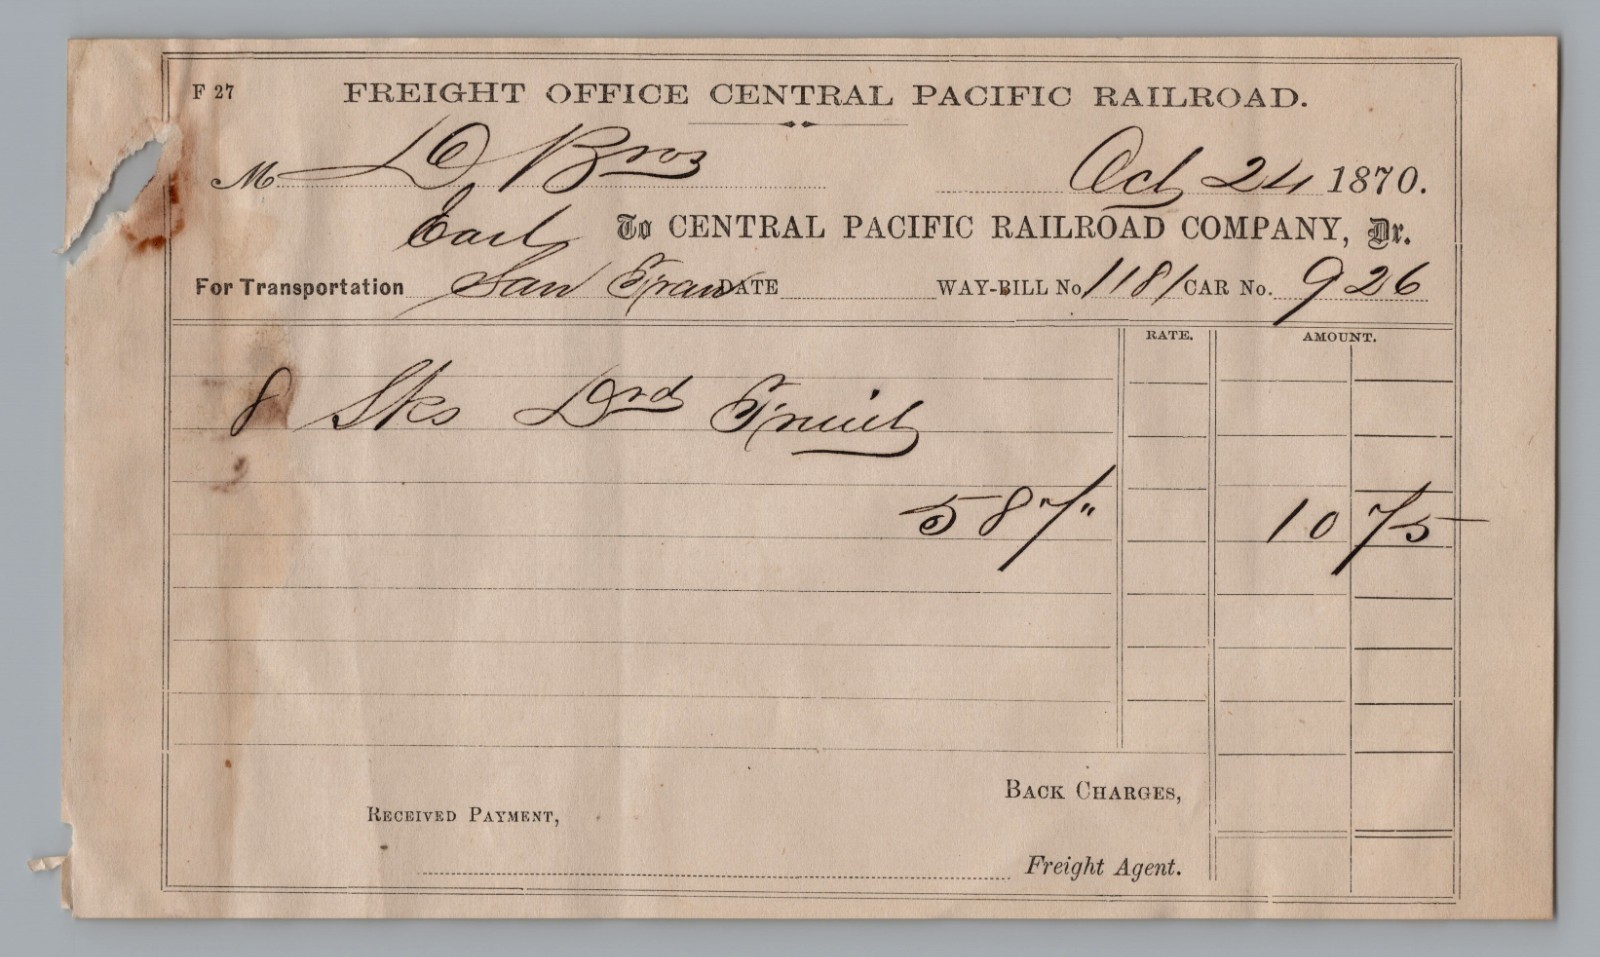 F 27
FREIGHT OFFICE CENTRAL PACIFIC RAILROAD.
M D Bros Oct 24 1870.
To CENTRAL PACIFIC RAILROAD COMPANY, Dr.
For Transportation San Fran DATE WAY-BILL No 1181 CAR No. 926
RATE. AMOUNT.
8 Sks Drd Fruit
587" 10 75
BACK CHARGES,
RECEIVED PAYMENT,
Freight Agent.